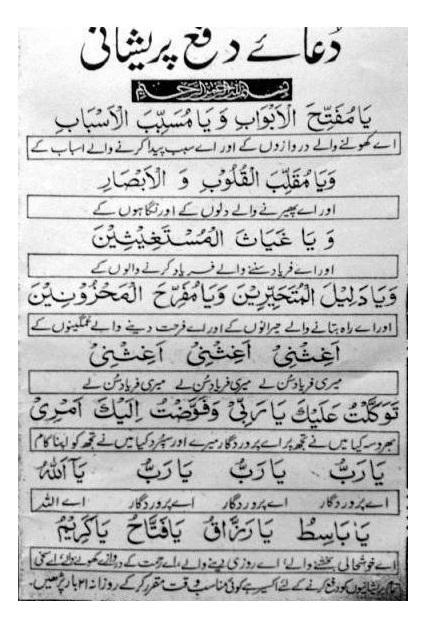 دُعائے دفع پریشانی
بسم اللہ الرحمن الرحیم
يَا مُفَتِّحَ الْاَبْوَابِ وَيَا مُسَبِّبَ الْاَسْبَابِ
اے کھولنے والے دروازوں کے اور اے سبب پیدا کرنے والے اسباب کے
وَيَا مُقَلِّبَ الْقُلُوْبِ وَ الْاَبْصَارِ
اور اے پھیرنے والے دلوں کے اور نگاہوں کے
وَ يَا غَيَاثَ الْمُسْتَغِيْثِيْنَ
اور اے فریاد سننے والے فریاد کرنے والوں کے
وَيَا دَلِيْلَ الْمُتَحَيِّرِيْنَ وَيَا مُفَرِّحَ الْمَحْزُوْنِيْنَ
اور اے راہ بتانے والے حیرانوں کے اور اے فرحت دینے والے غمگینوں کے
اَغِثْنِیْ اَغِثْنِیْ اَغِثْنِیْ
میری فریاد سُن لے میری فریاد سُن لے میری فریاد سُن لے
تَوَكَّلْتُ عَلَيْكَ يَا رَبِّیْ وَفَوَّضْتُ اِلَيْكَ اَمْرِیْ
بھروسہ کیا میں نے تجھ پر اے پروردگار میرے اور سپرد کیا میں نے تجھ کو اپنا کام
يَا رَبُّ يَا رَبُّ يَا رَبُّ يَآ اَللّٰهُ
اے پروردگار اے پروردگار اے پروردگار اے اللہ
يَا بَاسِطُ يَا رَزَّاقُ يَا فَتَّاحُ يَا كَرِيْمُ
اے خوشحالی بخشنے والے، اے روزی دینے والے، اے رحمت کے دروازے کھولنے والے، اے سخی
تمام پریشانیوں کو دفع کرنے کے لئے اکسیر ہے کوئی مناسب وقت مقرر کر کے روزانہ ۲۱ بار پڑھیں۔